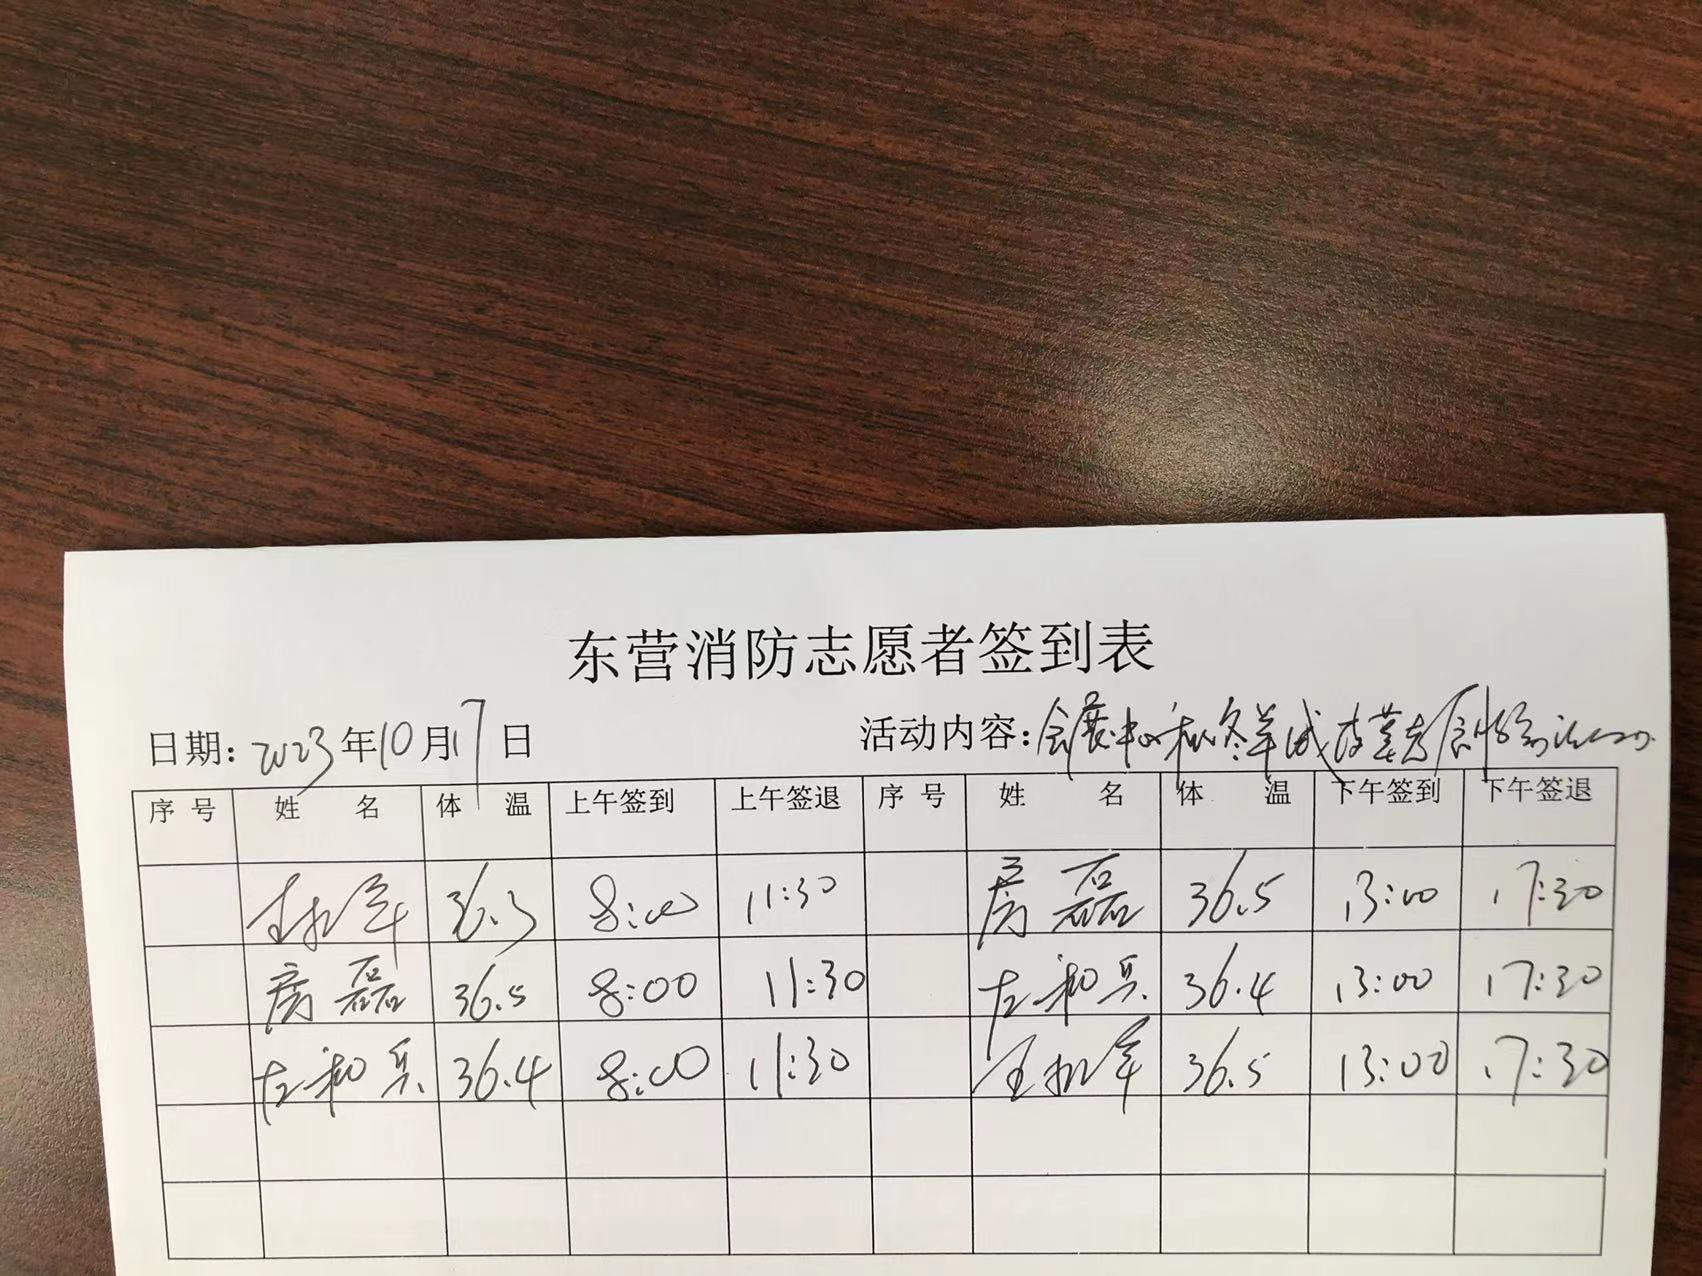 东营消防志愿者签到表
日期: 2023年10月17日 活动内容: 会展中心
序号 姓名 体温 上午签到 上午签退 序号 姓名 体温 下午签到 下午签退
36.3 8:00 11:30 房磊 36.5 13:00 17:30
房磊 36.5 8:00 11:30 左和兵 36.4 13:00 17:30
左和兵 36.4 8:00 11:30 36.5 13:00 17:30